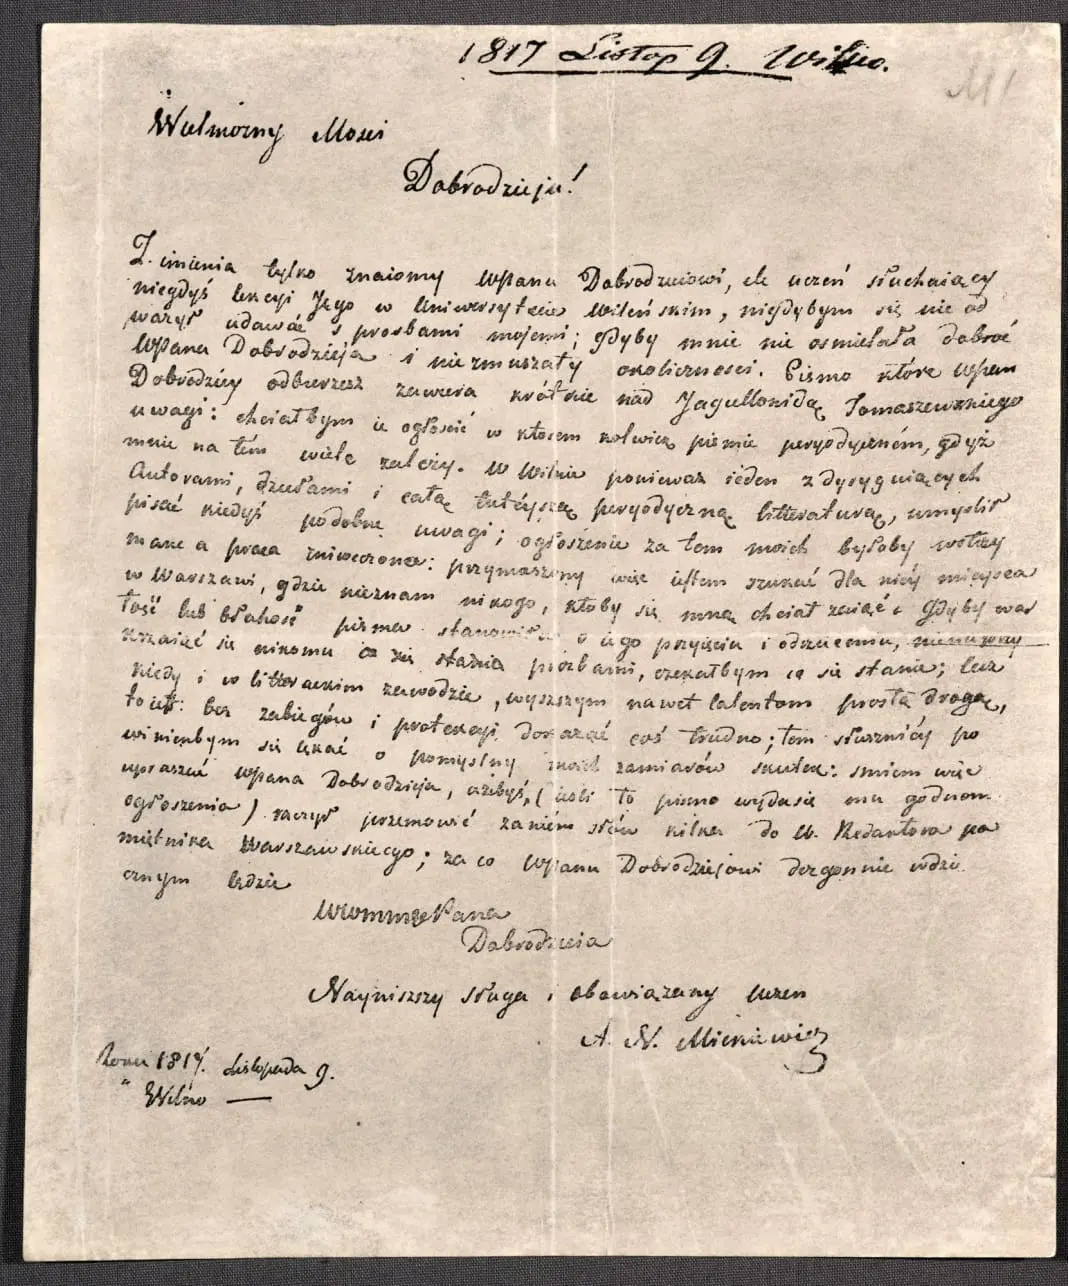 1817 Listop 9. Wilno.
Wielmożny Mości
Dobrodzieju!
Z imienia tylko znaiomy WPanu Dobrodzieiowi, ale uczeń słuchaiący
niegdyś lekcyi Jego w Uniwersytecie Wileńskim, nigdybym się nie od
ważył udawać z prośbami mojemi; gdyby mnie nie ośmielała dobroć
WPana Dobrodzieja i nie zmuszały okoliczności. Pismo które WPan
Dobrodziey odbierzesz zawiera krótkie nad Jagiellonidą Tomaszewskiego
uwagi: chciałbym ie ogłosić w którem kolwiek piśmie peryodyczném, gdyż
mnie na tém wiele zależy. W Wilnie ponieważ ieden z dyryguiących
Autorami, dziełami i całą tuteyszą peryodyczną litteraturą, umyślił
pisać kiedyś podobne uwagi; ogłoszenie za tem moich byłoby wstrzy
mane a praca zniweczona: przymuszony więc iestem szukać dla niey mieysca
w Warszawie, gdzie nieznam nikogo, ktoby się mną chciał zaiąć. Gdyby war
tość lub błahość pisma stanowiła o iego przyięciu i odrzuceniu,
się nikomu prośbami, czekałbym co się stanie; lecz
kiedy i w litterackim zawodzie, wyższym nawet talentom prostą drogą,
to iest: bez zabiegów i protekcyi dokazać coś trudno; tem słuszniéy po
winienbym się lękać o pomyślny moich zamiarów skutek: śmiem więc
upraszać WPana Dobrodzieja, ażebyś, (ieśli to pismo wydasię mu godnem
ogłoszenia) raczył przemówić zaniem słów kilka do W. Redaktora pa
miętnika Warszawskiego; za co WPanu Dobrodziejowi dozgonnie wdzię
cznym będzie
Dobrodzieia
Nayniższy sługa i obowiązany uczeń
A. N. Mickiewicz
Roku 1817. Listopada 9.
Wilno —